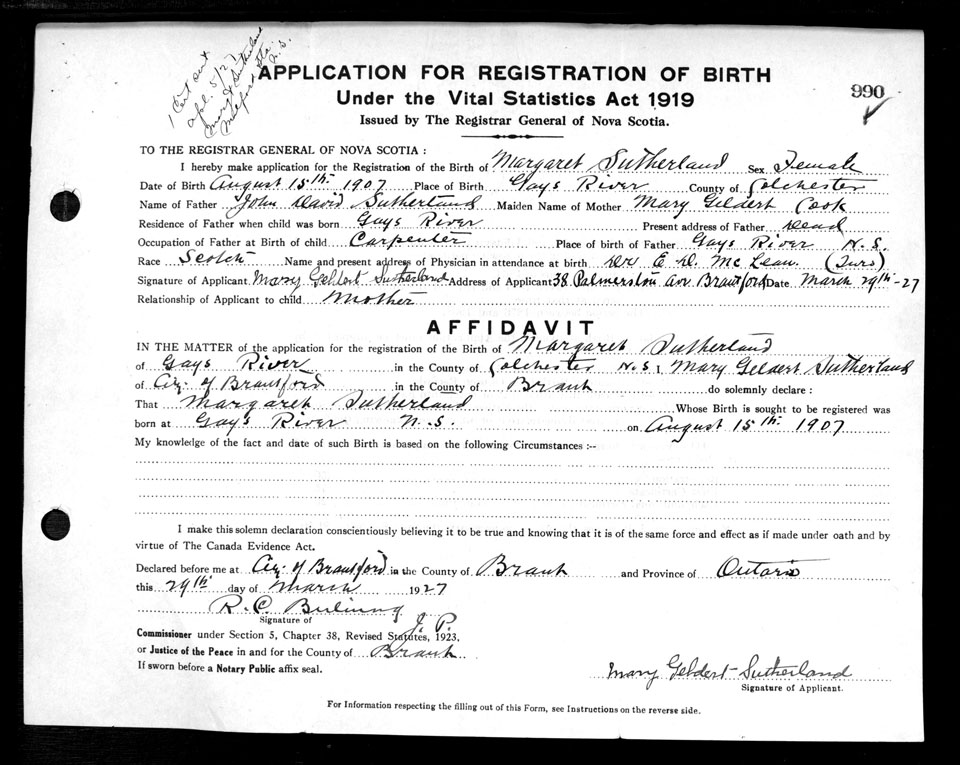 1 Cert sent
apl. 5/27
Mary G Sutherland
Milford Sta.
N.S.
APPLICATION FOR REGISTRATION OF BIRTH
990
Under the Vital Statistics Act 1919
Issued by The Registrar General of Nova Scotia.
TO THE REGISTRAR GENERAL OF NOVA SCOTIA :
I hereby make application for the Registration of the Birth of Margaret Sutherland Sex Female
Date of Birth August 15th 1907 Place of Birth Gays River County of Colchester
Name of Father John David Sutherland Maiden Name of Mother Mary Geldert Cook
Residence of Father when child was born Gays River Present address of Father Dead
Occupation of Father at Birth of child Carpenter Place of birth of Father Gays River N.S.
Race Scotch Name and present address of Physician in attendance at birth Dr E. D. McLean. (Truro)
Signature of Applicant Mary Geldert Sutherland Address of Applicant 38 Palmerston Ave Brantford Date March 29th-27
Relationship of Applicant to child Mother
AFFIDAVIT
IN THE MATTER of the application for the registration of the Birth of Margaret Sutherland
of Gays River in the County of Colchester N.S. I, Mary Geldert Sutherland
of City of Brantford in the County of Brant do solemnly declare :
That Margaret Sutherland Whose Birth is sought to be registered was
born at Gays River N.S. on August 15th 1907
My knowledge of the fact and date of such Birth is based on the following Circumstances :--
I make this solemn declaration conscientiously believing it to be true and knowing that it is of the same force and effect as if made under oath and by
virtue of The Canada Evidence Act.
Declared before me at City of Brantford in the County of Brant and Province of Ontario
this 29th day of March 1927
R. C.
Signature of J. P.
Commissioner under Section 5, Chapter 38, Revised Statutes, 1923,
or Justice of the Peace in and for the County of Brant
If sworn before a Notary Public affix seal.
Mary Geldert Sutherland
Signature of Applicant.
For Information respecting the filling out of this Form, see Instructions on the reverse side.